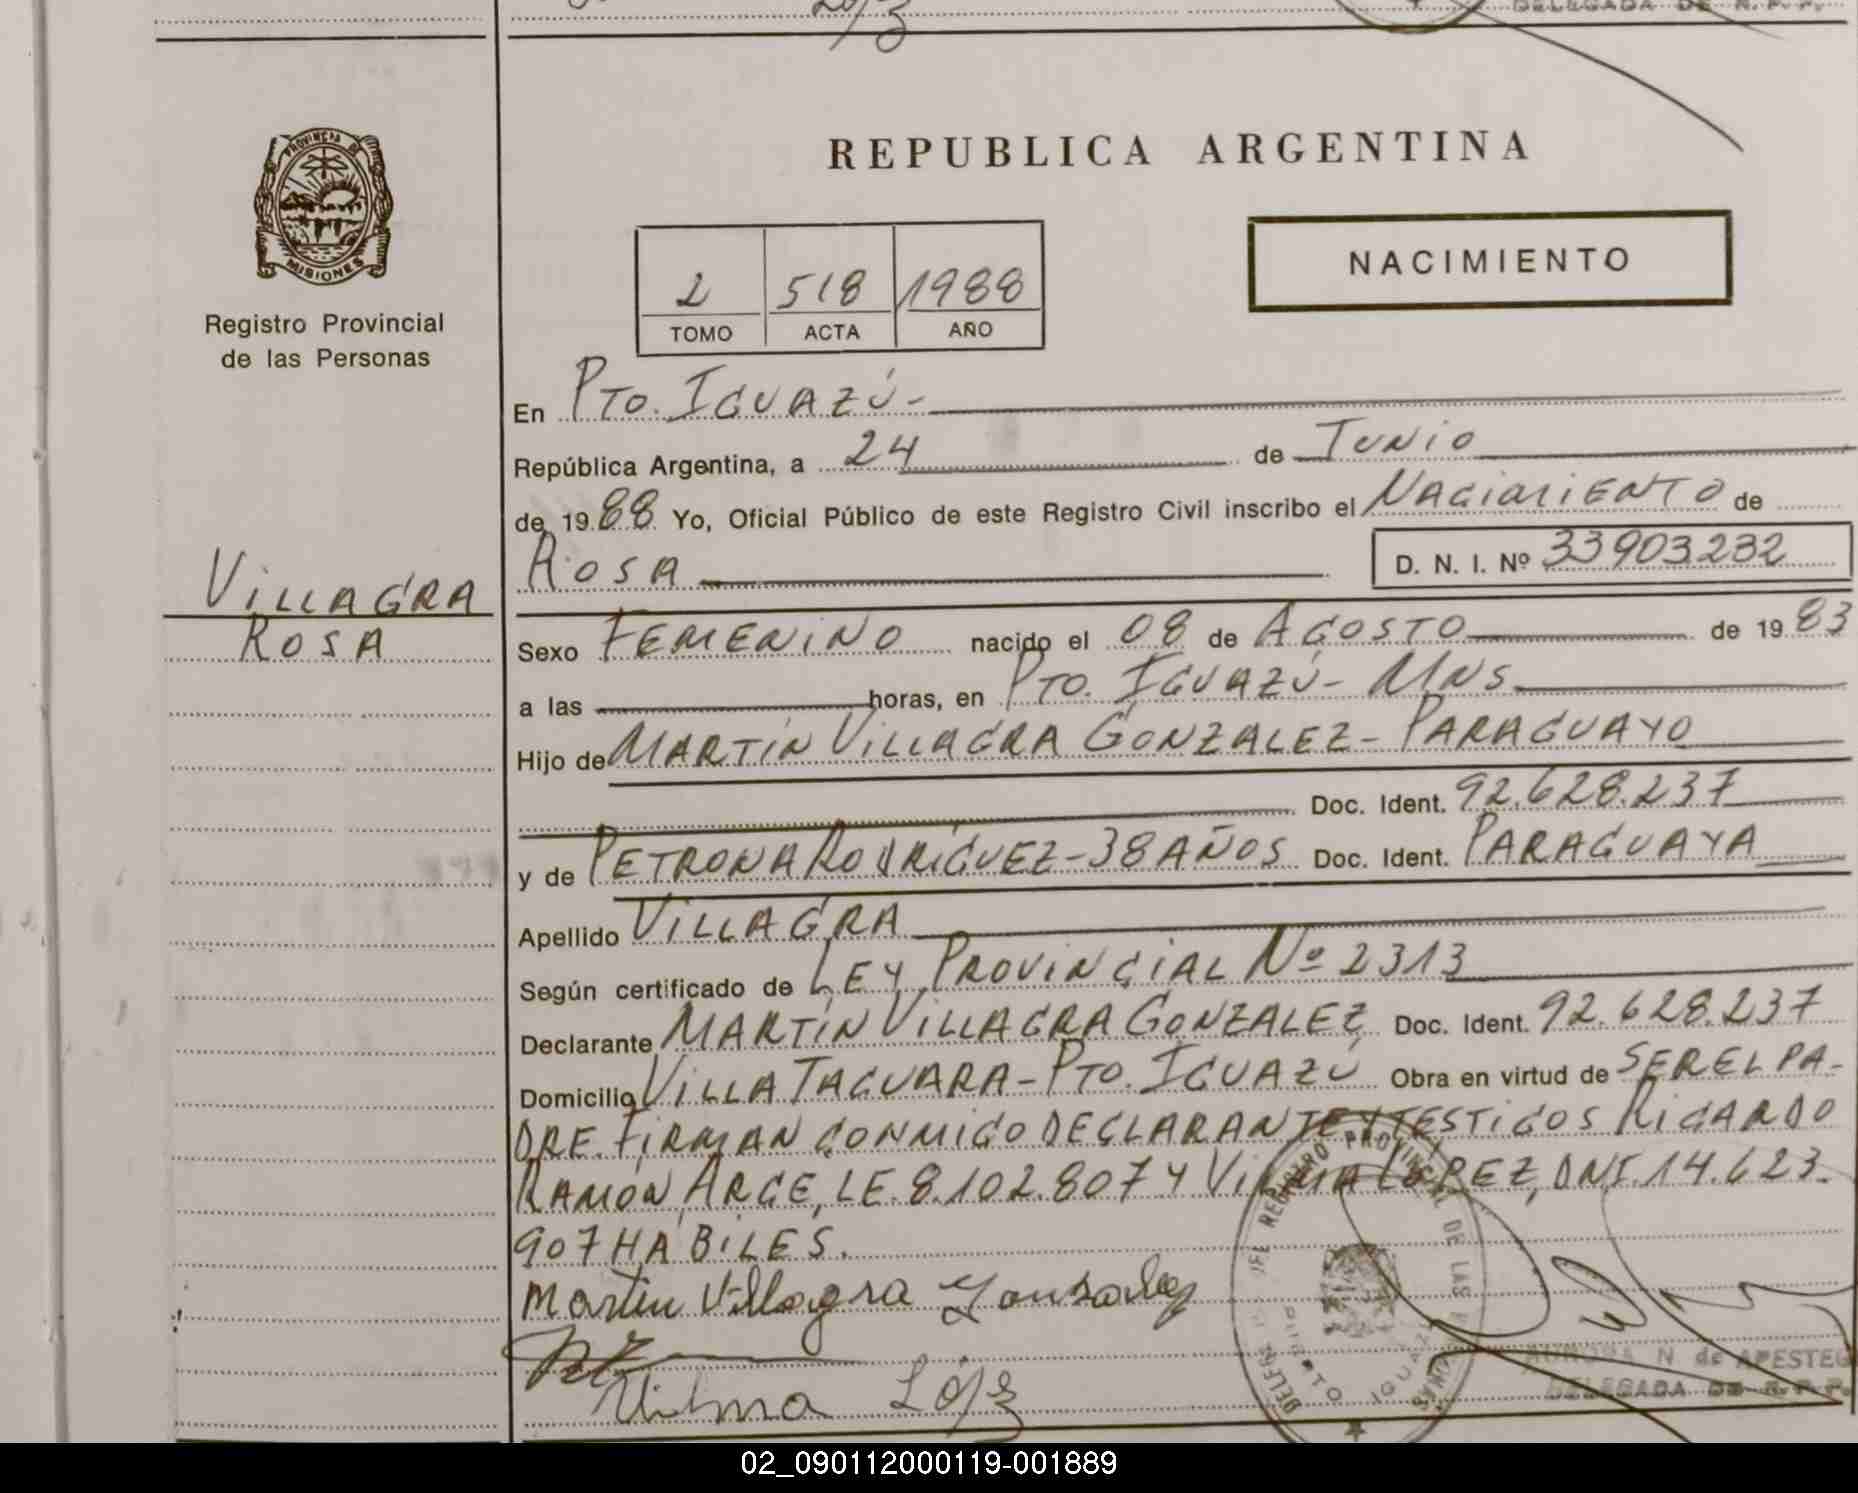 DELEGADA DE R.P.P.
PROVINCIA DE
MISIONES
Registro Provincial
de las Personas
REPUBLICA ARGENTINA
NACIMIENTO
2 518 1988
TOMO ACTA AÑO
En PTO. IGUAZÚ-
República Argentina, a 24 de JUNIO
de 1988 Yo, Oficial Público de este Registro Civil inscribo el NACIMIENTO de
ROSA D. N. I. Nº 33903232
VILLAGRA
ROSA
Sexo FEMENINO nacido el 08 de AGOSTO de 1983
a las horas, en PTO. IGUAZÚ- MNS
Hijo de MARTÍN VILLAGRA GONZALEZ- PARAGUAYO
Doc. Ident. 92.628.237
y de PETRONA RODRÍGUEZ-38 AÑOS Doc. Ident. PARAGUAYA
Apellido VILLAGRA
Según certificado de LEY PROVINCIAL Nº 2313
Declarante MARTÍN VILLAGRA GONZALEZ Doc. Ident. 92.628.237
Domicilio VILLA TACUARA-PTO. IGUAZÚ Obra en virtud de SER EL PA-
DRE. FIRMAN CONMIGO DECLARANTE Y TESTIGOS RICARDO
RAMON ARCE, LE.8.102.807 Y VILMA LOPEZ, DNI.14.623.
907 HABILES.
Martin Villagra Gonsalez
Vilma Lópz
REGISTRO PROVINCIAL DE LAS
PUERTO IGUAZU
AURORA N. de APESTEG
DELEGADA DE R.P.P.
02_090112000119-001889